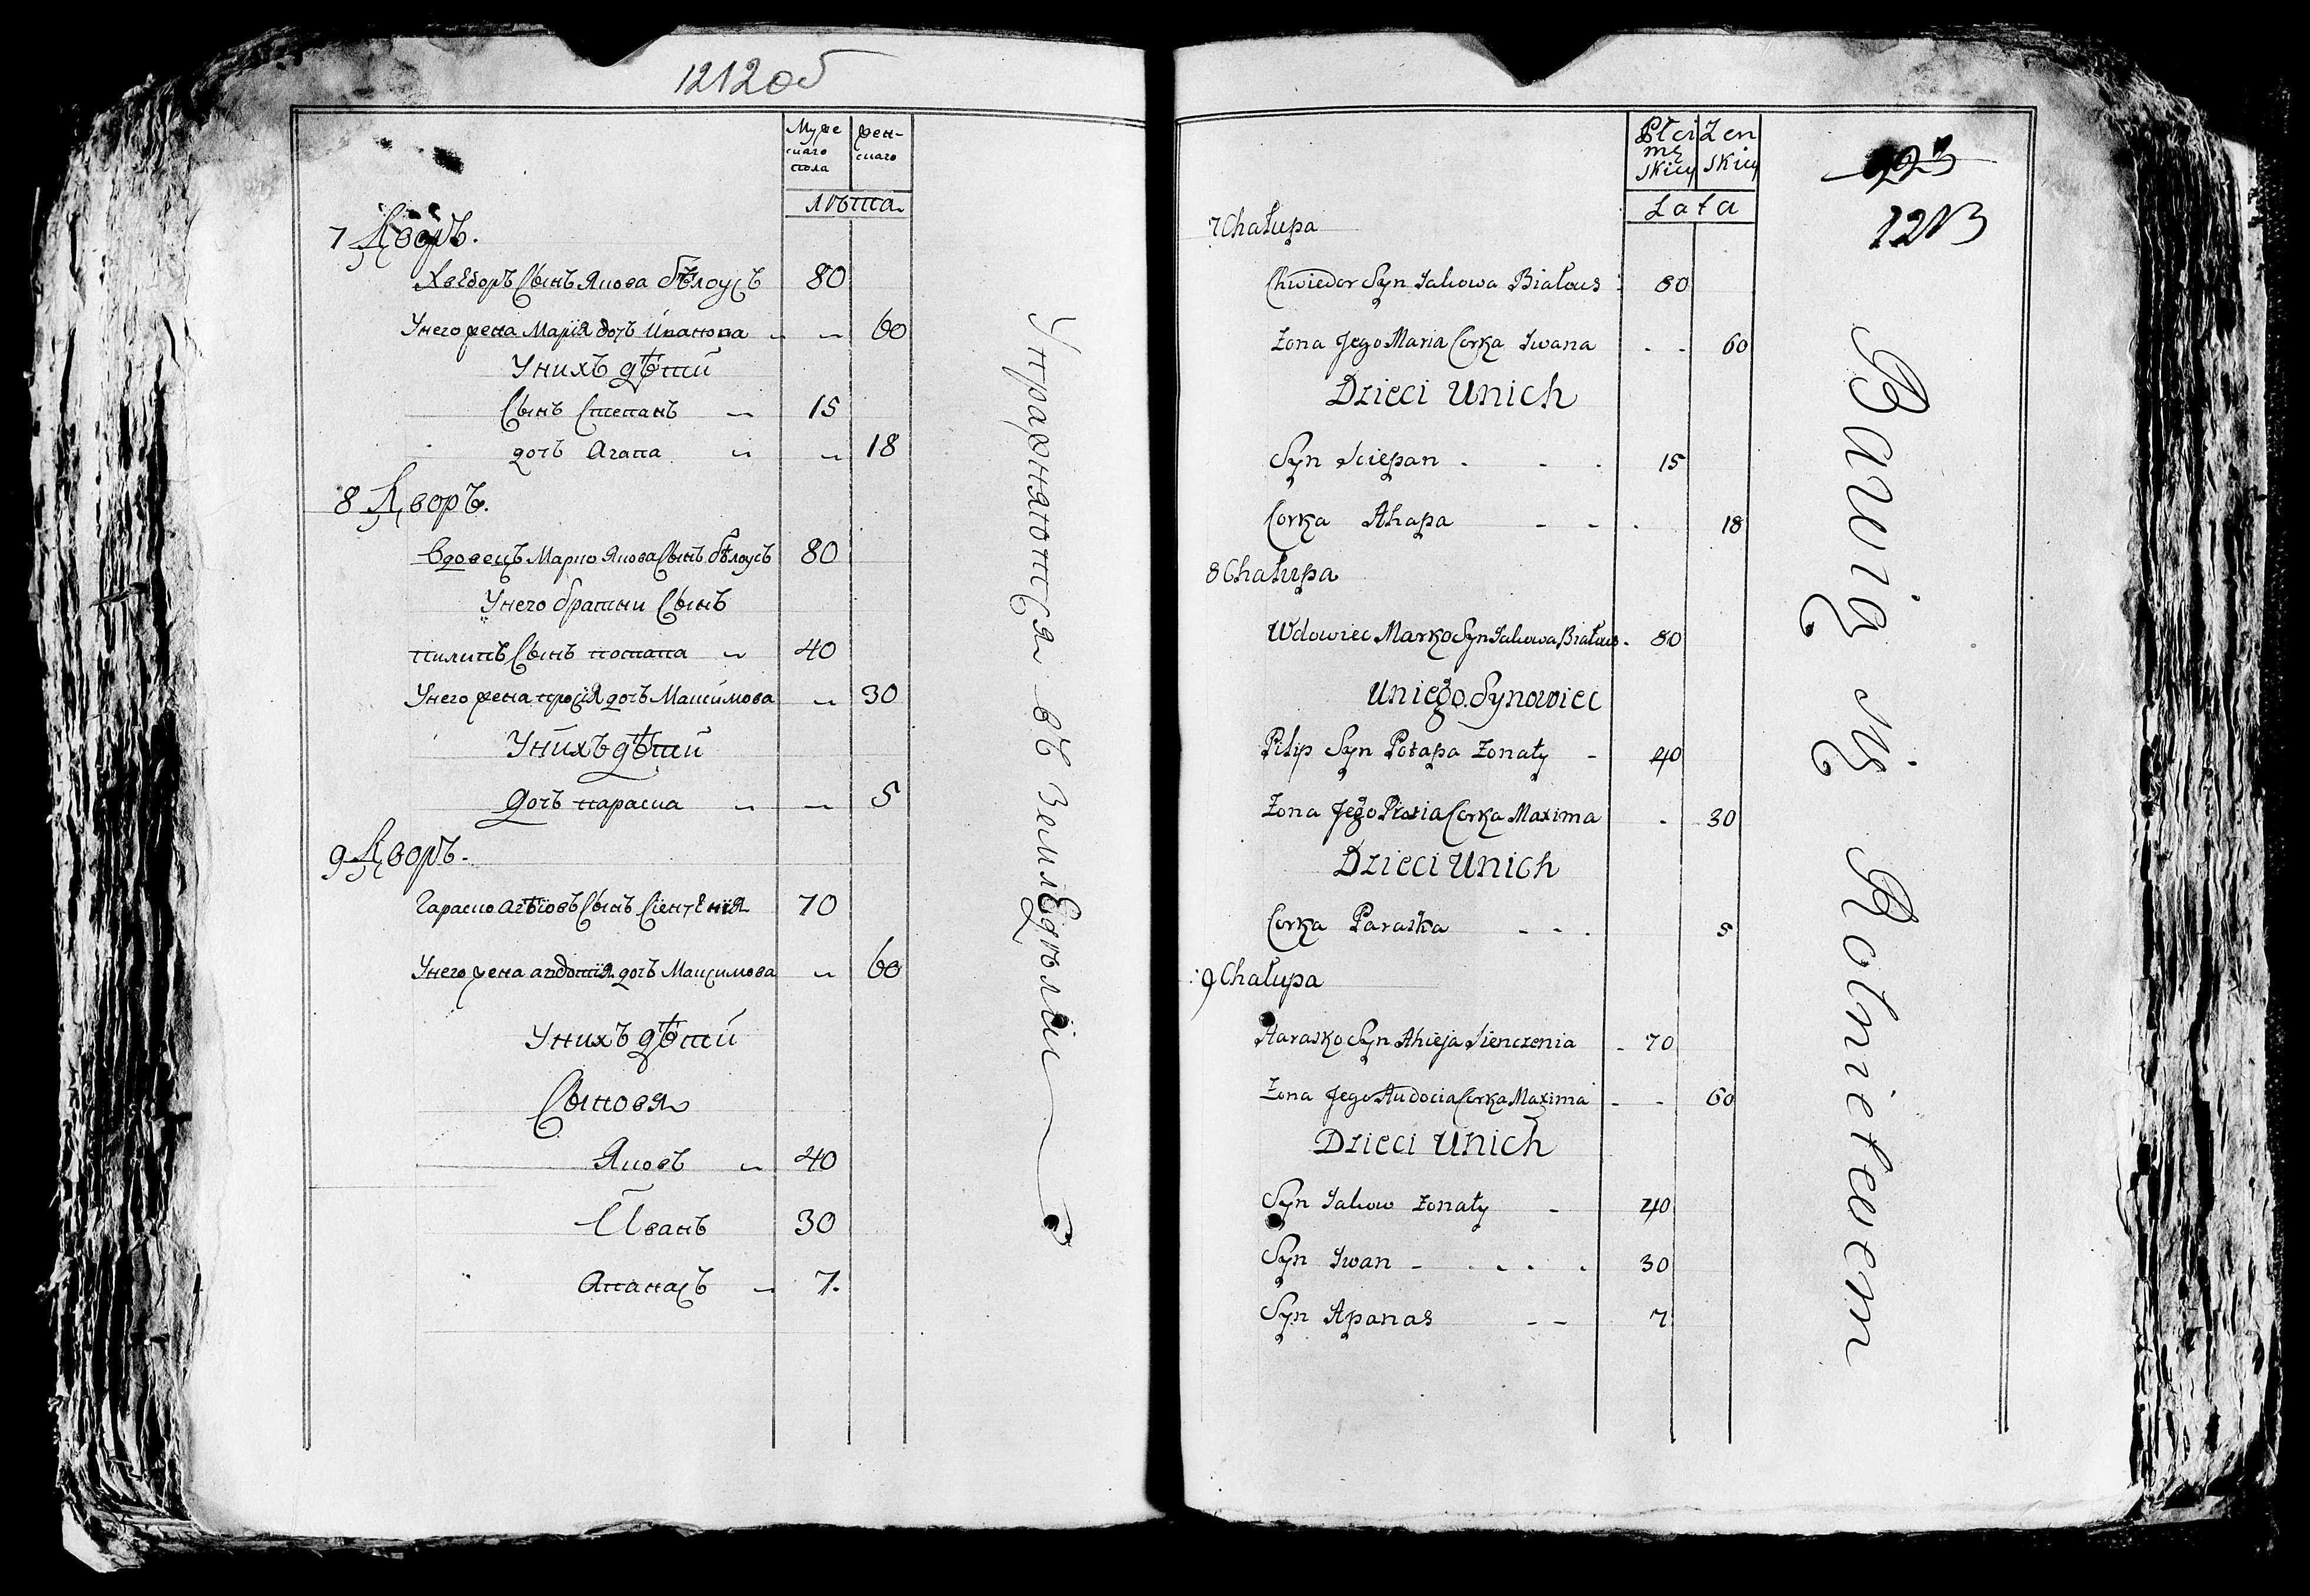 1212об
Мужескаго пола
женскаго
лѣта
7 Дворъ.
Хведоръ Сынъ Якова бѣлоусъ 80
Унего жена Марїя дочъ Иванова 60
Унихъ дѣтй
Сынъ Степанъ 15
дочъ Агапа 18
8 Дворъ.
Вдовецъ Марко Якова Сынъ бѣлоусъ 80
Унего братни Сынъ
пилипъ Сынъ потапа 40
Унего жена просїя дочъ Максимова 30
Унихъ дѣтй
Дочъ параска 5
9 Дворъ.
Гараско Агѣювъ Сынъ Сѣенченїя 70
Унего жена авдотїя дочъ Максимова 60
Унихъ дѣтй
Сыновя
Яковъ 40
Иванъ 30
Апанасъ 7.
Упражняютъся въ Земледѣлїи
Płci męskiey
Zenskiey
Lata
923
1213
7 Chałupa
Chwiedor Syn Jakowa Białous 80
Zona Jego Maria Corka Iwana 60
Dzieci Unich
Syn Sciepan 15
Corka Ahapa 18
8 Chałupa
Wdowiec Marko Syn Jakowa Białous 80
Uniego Synowiec
Pilip Syn Potapa Zonaty 40
Zona Jego Prosia Corka Maxima 30
Dzieci Unich
Corka Paraska 5
9 Chałupa
Harasko Syn Ahieja Sienczenia 70
Zona Jego Audocia Corka Maxima 60
Dzieci Unich
Syn Jakow Zonaty 40
Syn Iwan 30
Syn Apanas 7
Bawią się Rolnictwem